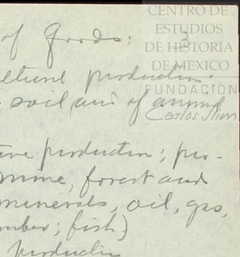 CENTRO DE
ESTUDIOS
DE HISTORIA
DE MEXICO
FUNDACIÓN
Carlos Slim
of Goods: 3
production.
soil and of animal
production; pro-
mine, forest and
minerals, oil, gas,
mber; fish)
production